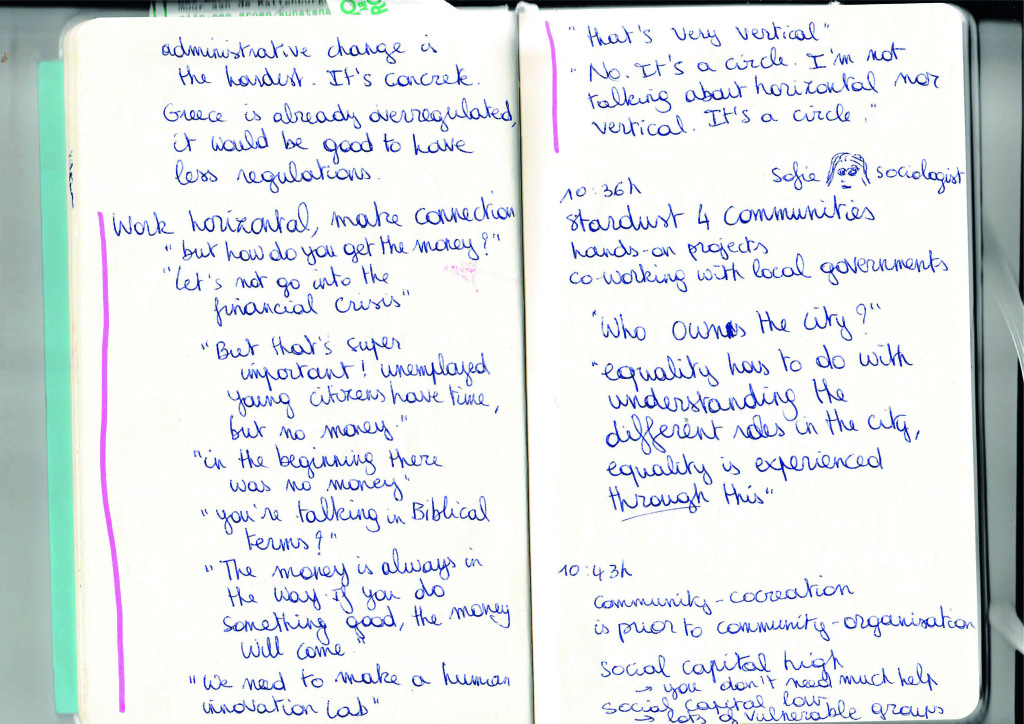 administrative change is
the hardest. It's concrete.
Greece is already overregulated,
it would be good to have
less regulations.
Work horizontal, make connection
"but how do you get the money?"
"let's not go into the
financial crisis"
"But that's super
important! unemployed
young citizens have time,
but no money."
"in the beginning there
was no money"
"you're talking in Biblical
terms?"
"The money is always in
the way. If you do
something good, the money
will come."
"We need to make a human
innovation lab"
"that's very vertical"
"No. It's a circle. I'm not
talking about horizontal nor
vertical. It's a circle."
Sofie sociologist
10:36h
Stardust 4 communities
hands-on projects
co-working with local governments
"Who owns the city?"
"equality has to do with
understanding the
different roles in the city,
equality is experienced
through this"
10:43h
community-cocreation
is prior to community-organisation
social capital high
→ you don't need much help
social capital low
→ lots of vulnerable groups